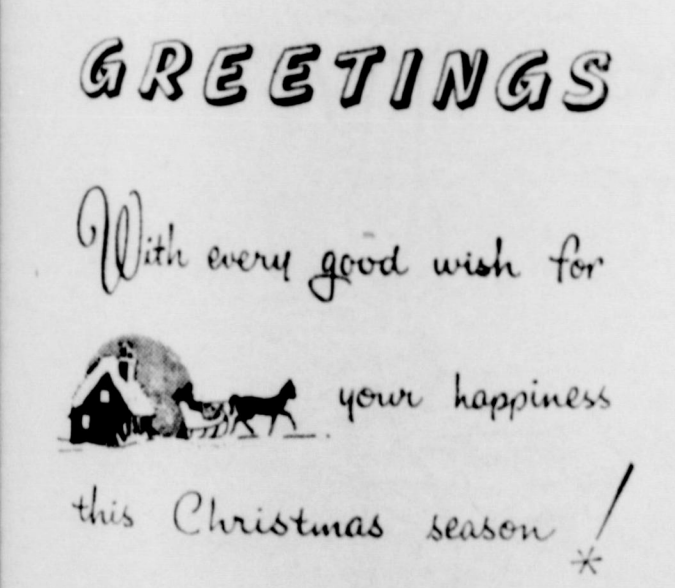 GREETINGS
With every good wish for
your happiness
this Christmas season!